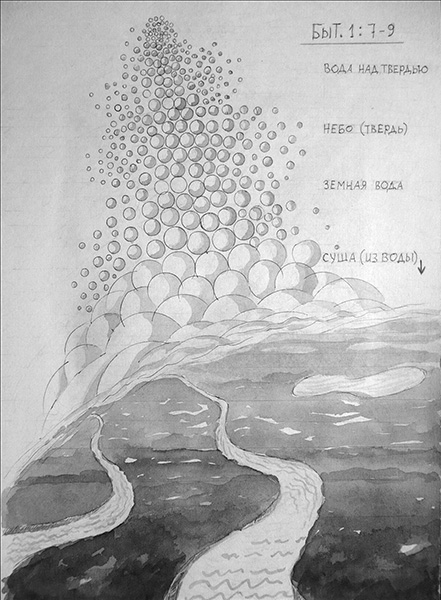 БЫТ. 1:7-9
ВОДА НАД ТВЕРДЬЮ
НЕБО (ТВЕРДЬ)
ЗЕМНАЯ ВОДА
СУША (ИЗ ВОДЫ)